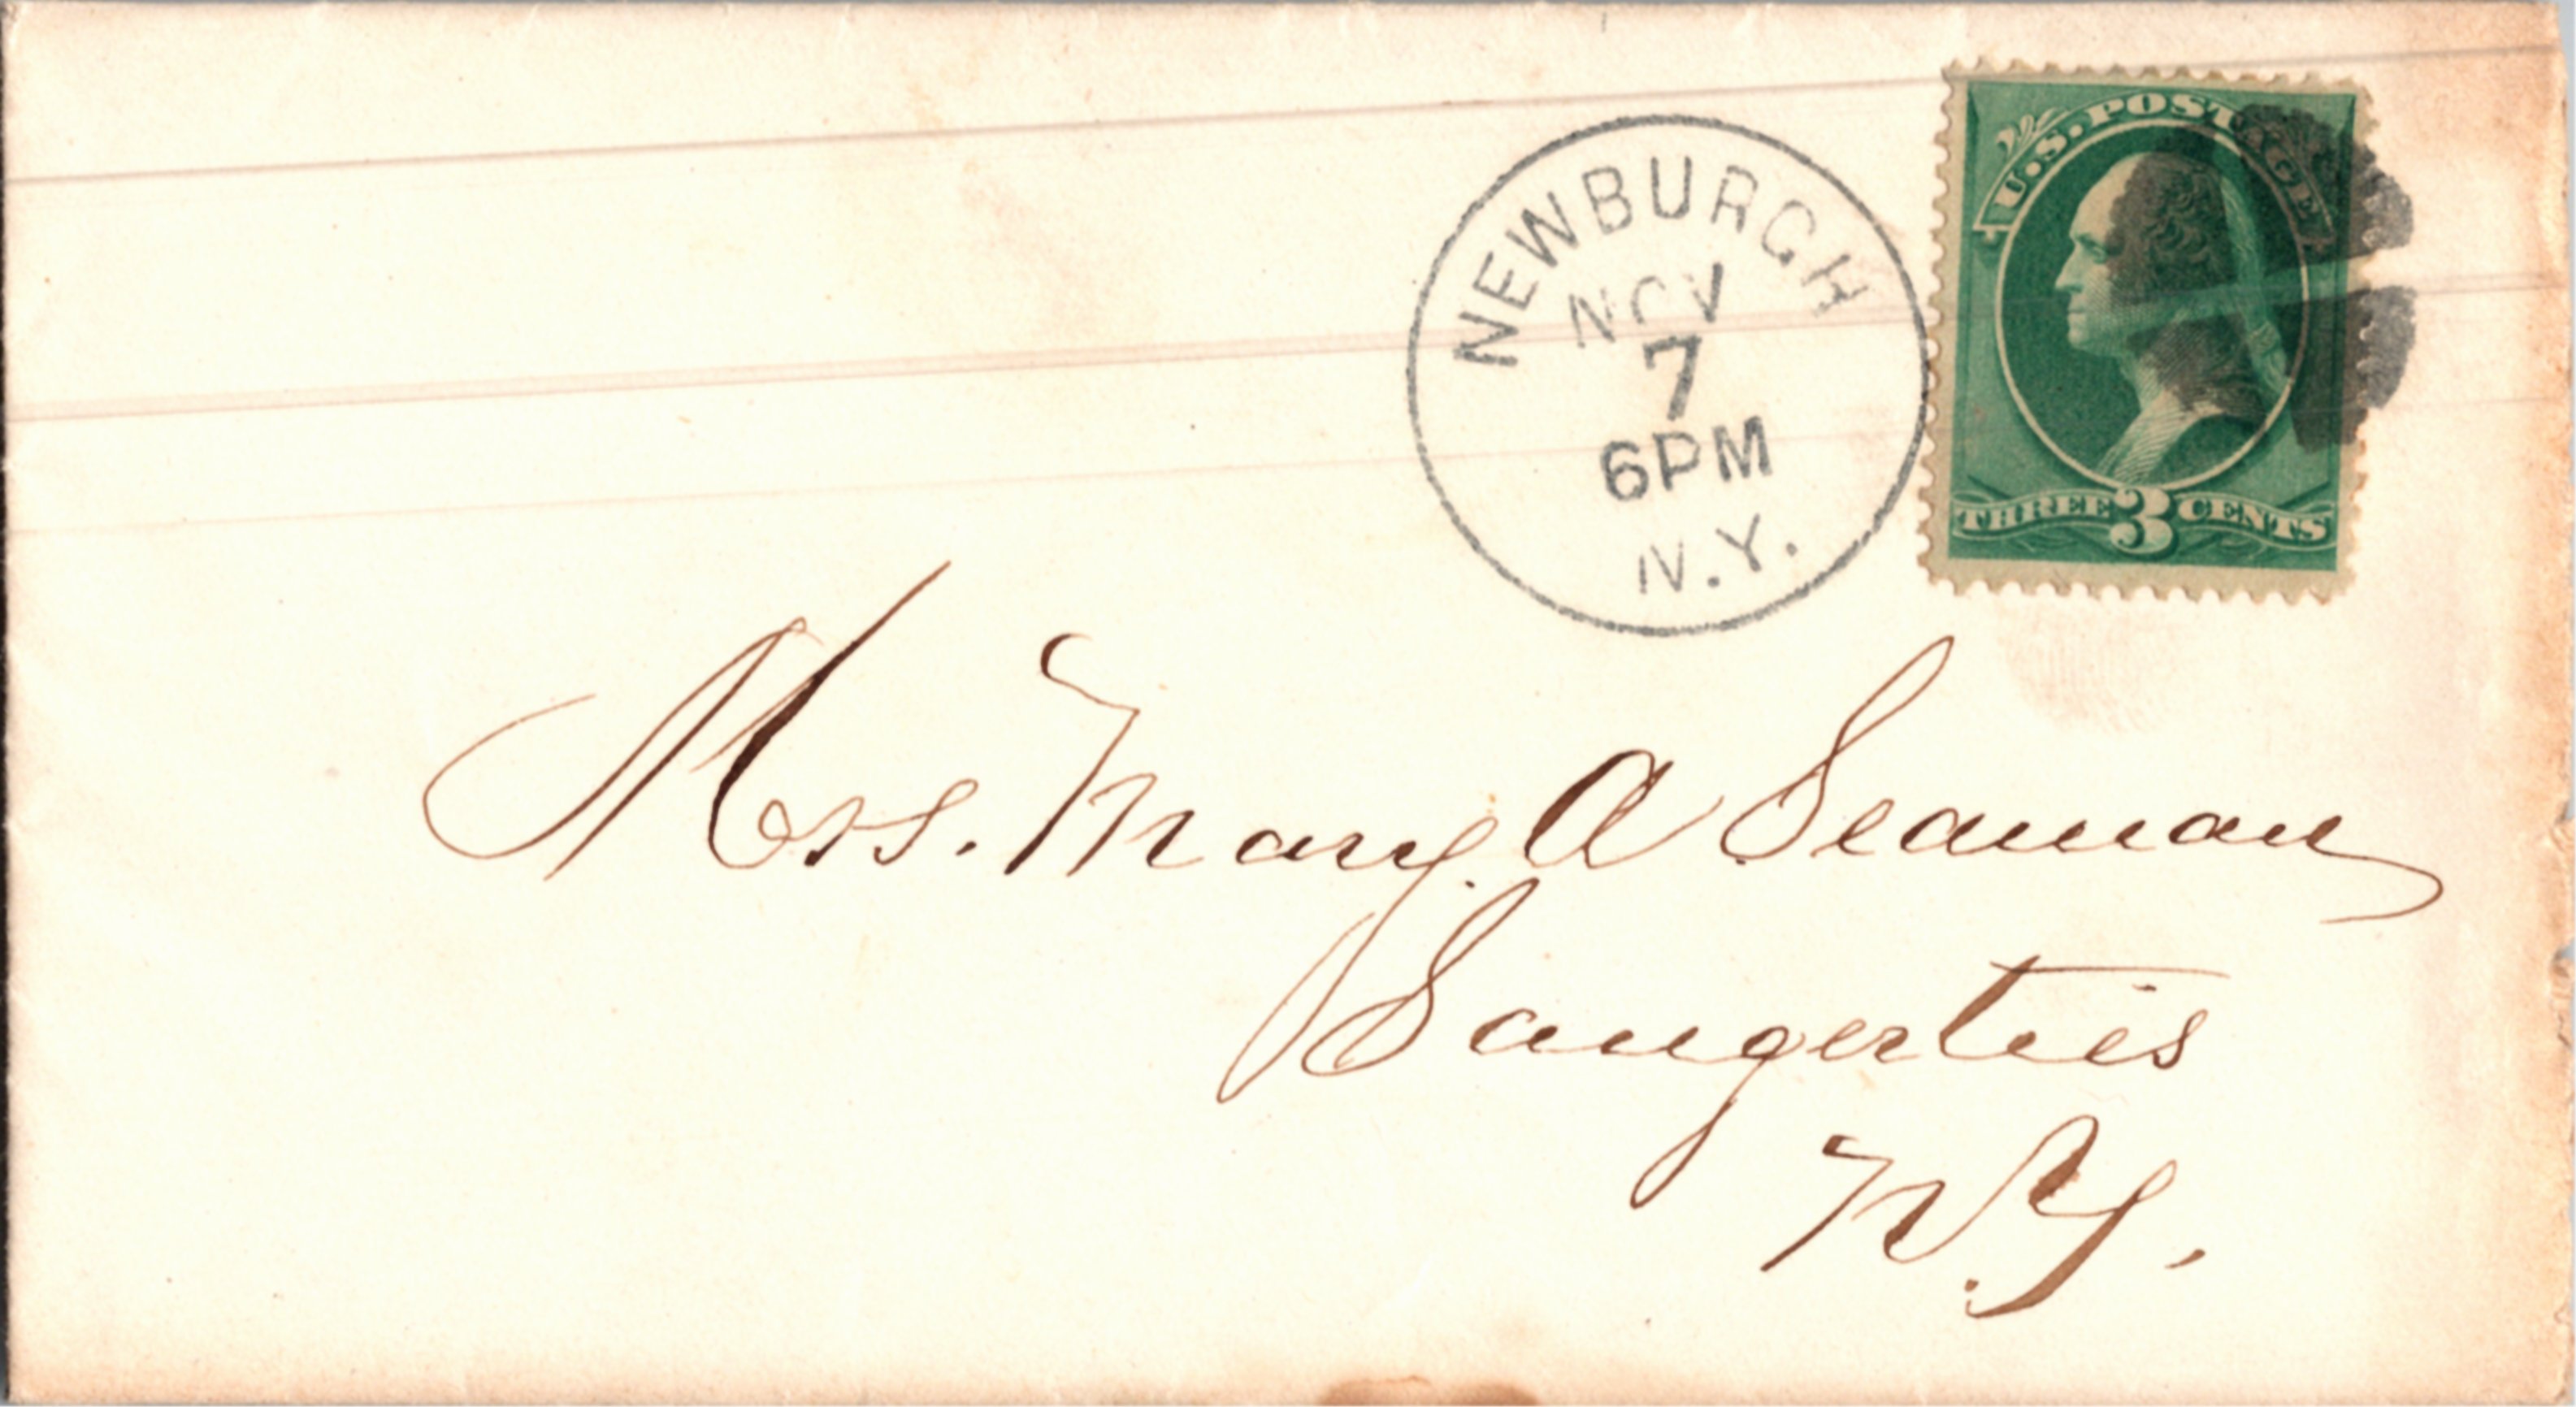 U.S. POSTAGE
NEWBURGH
NOV
7
6PM
N.Y.
THREE 3 CENTS
Mrs. Mary A Seaman
Saugerties
N.Y.